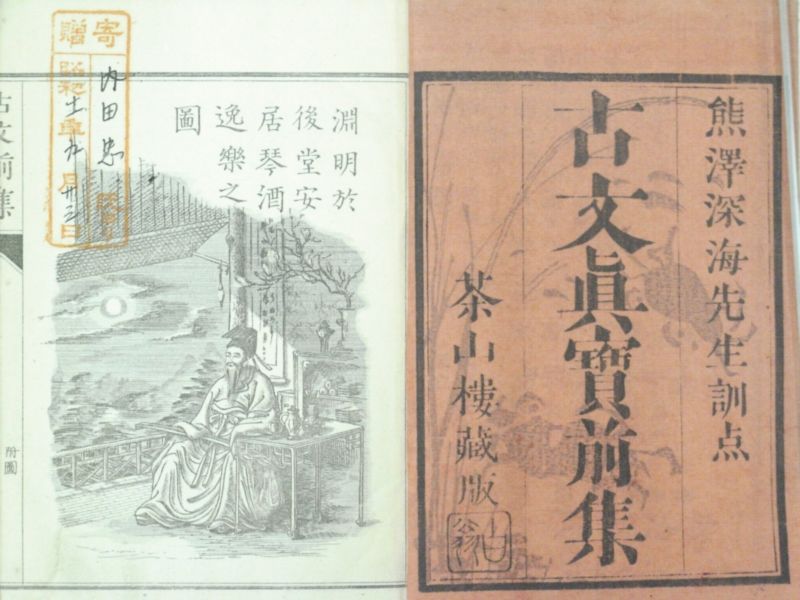 熊澤深海先生訓点
古文眞寳前集
茶山樓藏版
淵明於
後堂安
居琴酒
逸樂之
圖
寄贈
内田忠
昭和十一年九月廿三日
古文前集
附圖